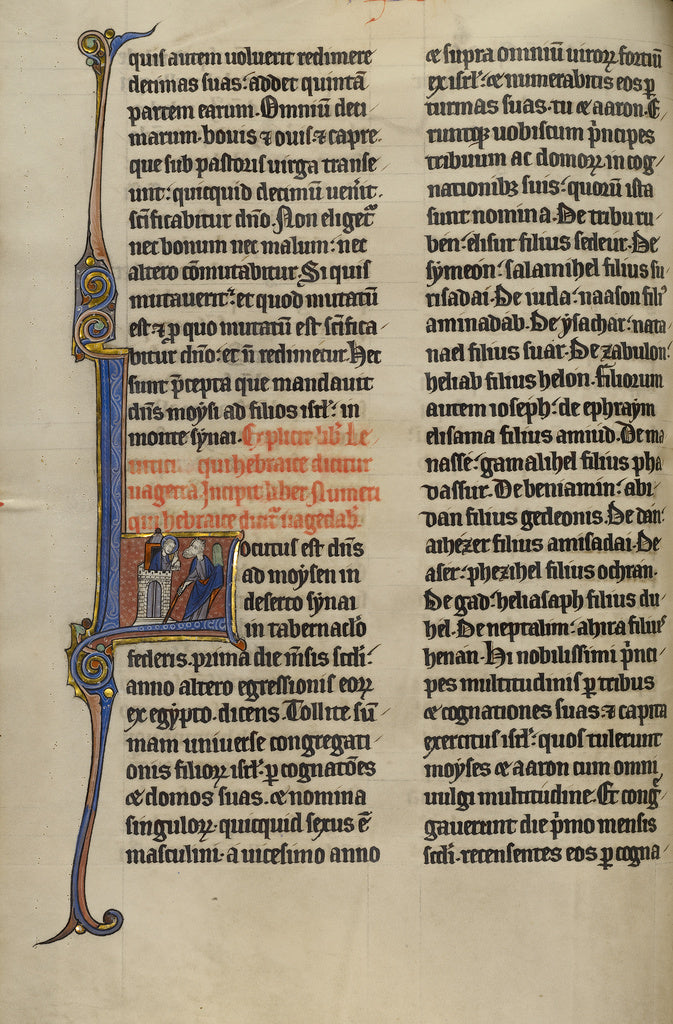 quis autem voluerit redimere
decimas suas: addet quintā
partem earum. Omniū deci
marum. bouis ⁊ ouis. ⁊ capre.
que sub pastoris uirga transe
unt: quicquid decimū uen̄it.
sc̄ificabitur dn̄o. Non eliget᷑
nec bonum nec malum: nec
altero cōmutabitur. Si quis
mutauerit: et quod mutatū
est ⁊ ꝑ quo mutatū est sc̄ifica
bitur dn̄o: et n̄ redimetur. Hec
sunt p̄cepta que mandauit
dn̄s moysi ad filios isrl̄: in
monte synai. Explicit lib̄ Le
uitici qui hebraice dicitur
uagecra Incipit liber Numeri
qui hebraice dicit᷑ uagedab̄.
Locutus est dn̄s
ad moysen in
deserto synai
in tabernac̄lo
federis. prima die m̄sis sc̄di:
anno altero egressionis eoꝝ
ex egypto. dicens. Tollite sū
mam uniuerse congregati
onis filioꝝ isrl̄. ꝑ cognatōes
⁊ domos suas. ⁊ nomina
singuloꝝ. quicquid sexus ē
masculini. a uicesimo anno
⁊ supra omniū uiroꝝ fortiū
ex isrl̄: ⁊ numerabitis eos ꝑ
turmas suas. tu ⁊ aaron. E
runtqꝫ uobiscum p̄ncipes
tribuum ac domoꝝ in cog
nationibꝫ suis: quorū ista
sunt nomina. De tribu ru
ben: elisur filius sedeur. De
symeon: salamihel filius su
risadai. De iuda: naason fili᷒
aminadab. De ysachar: nata
nael filius suar. De zabulon:
heliab filius helon. filiorum
autem ioseph: de ephraym
elisama filius amiud. De ma
nasse: gamalihel filius pha
dassur. De beniamin: abi
dan filius gedeonis. De dan:
aihezer filius amisadai. De
aser: phezihel filius ochran.
De gad: heliasaph filius du
hel. De neptalim: ahira filius
henan. Hi nobilissimi p̄nci
pes multitudinis ꝑ tribus
⁊ cognationes suas. ⁊ capita
exercitus isrl̄: quos tulerunt
moyses ⁊ aaron cum omni
uulgi multitudine. Et cong̃
gauerunt die p̄mo mensis
sc̄di. recensentes eos ꝑ cogna